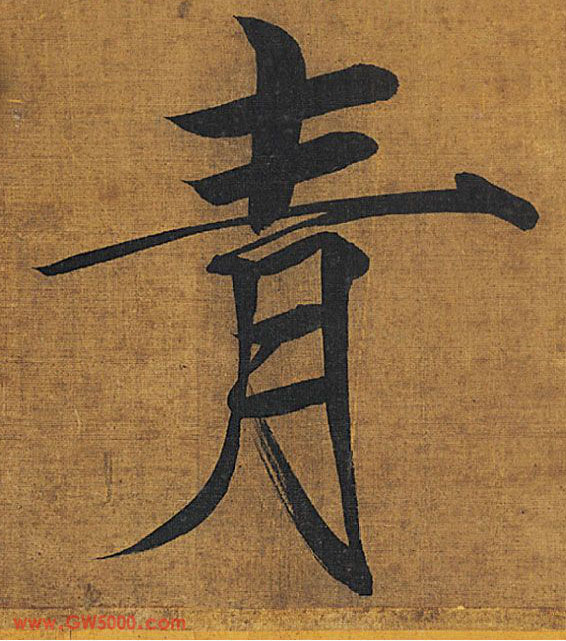 青
www.GW5000.com